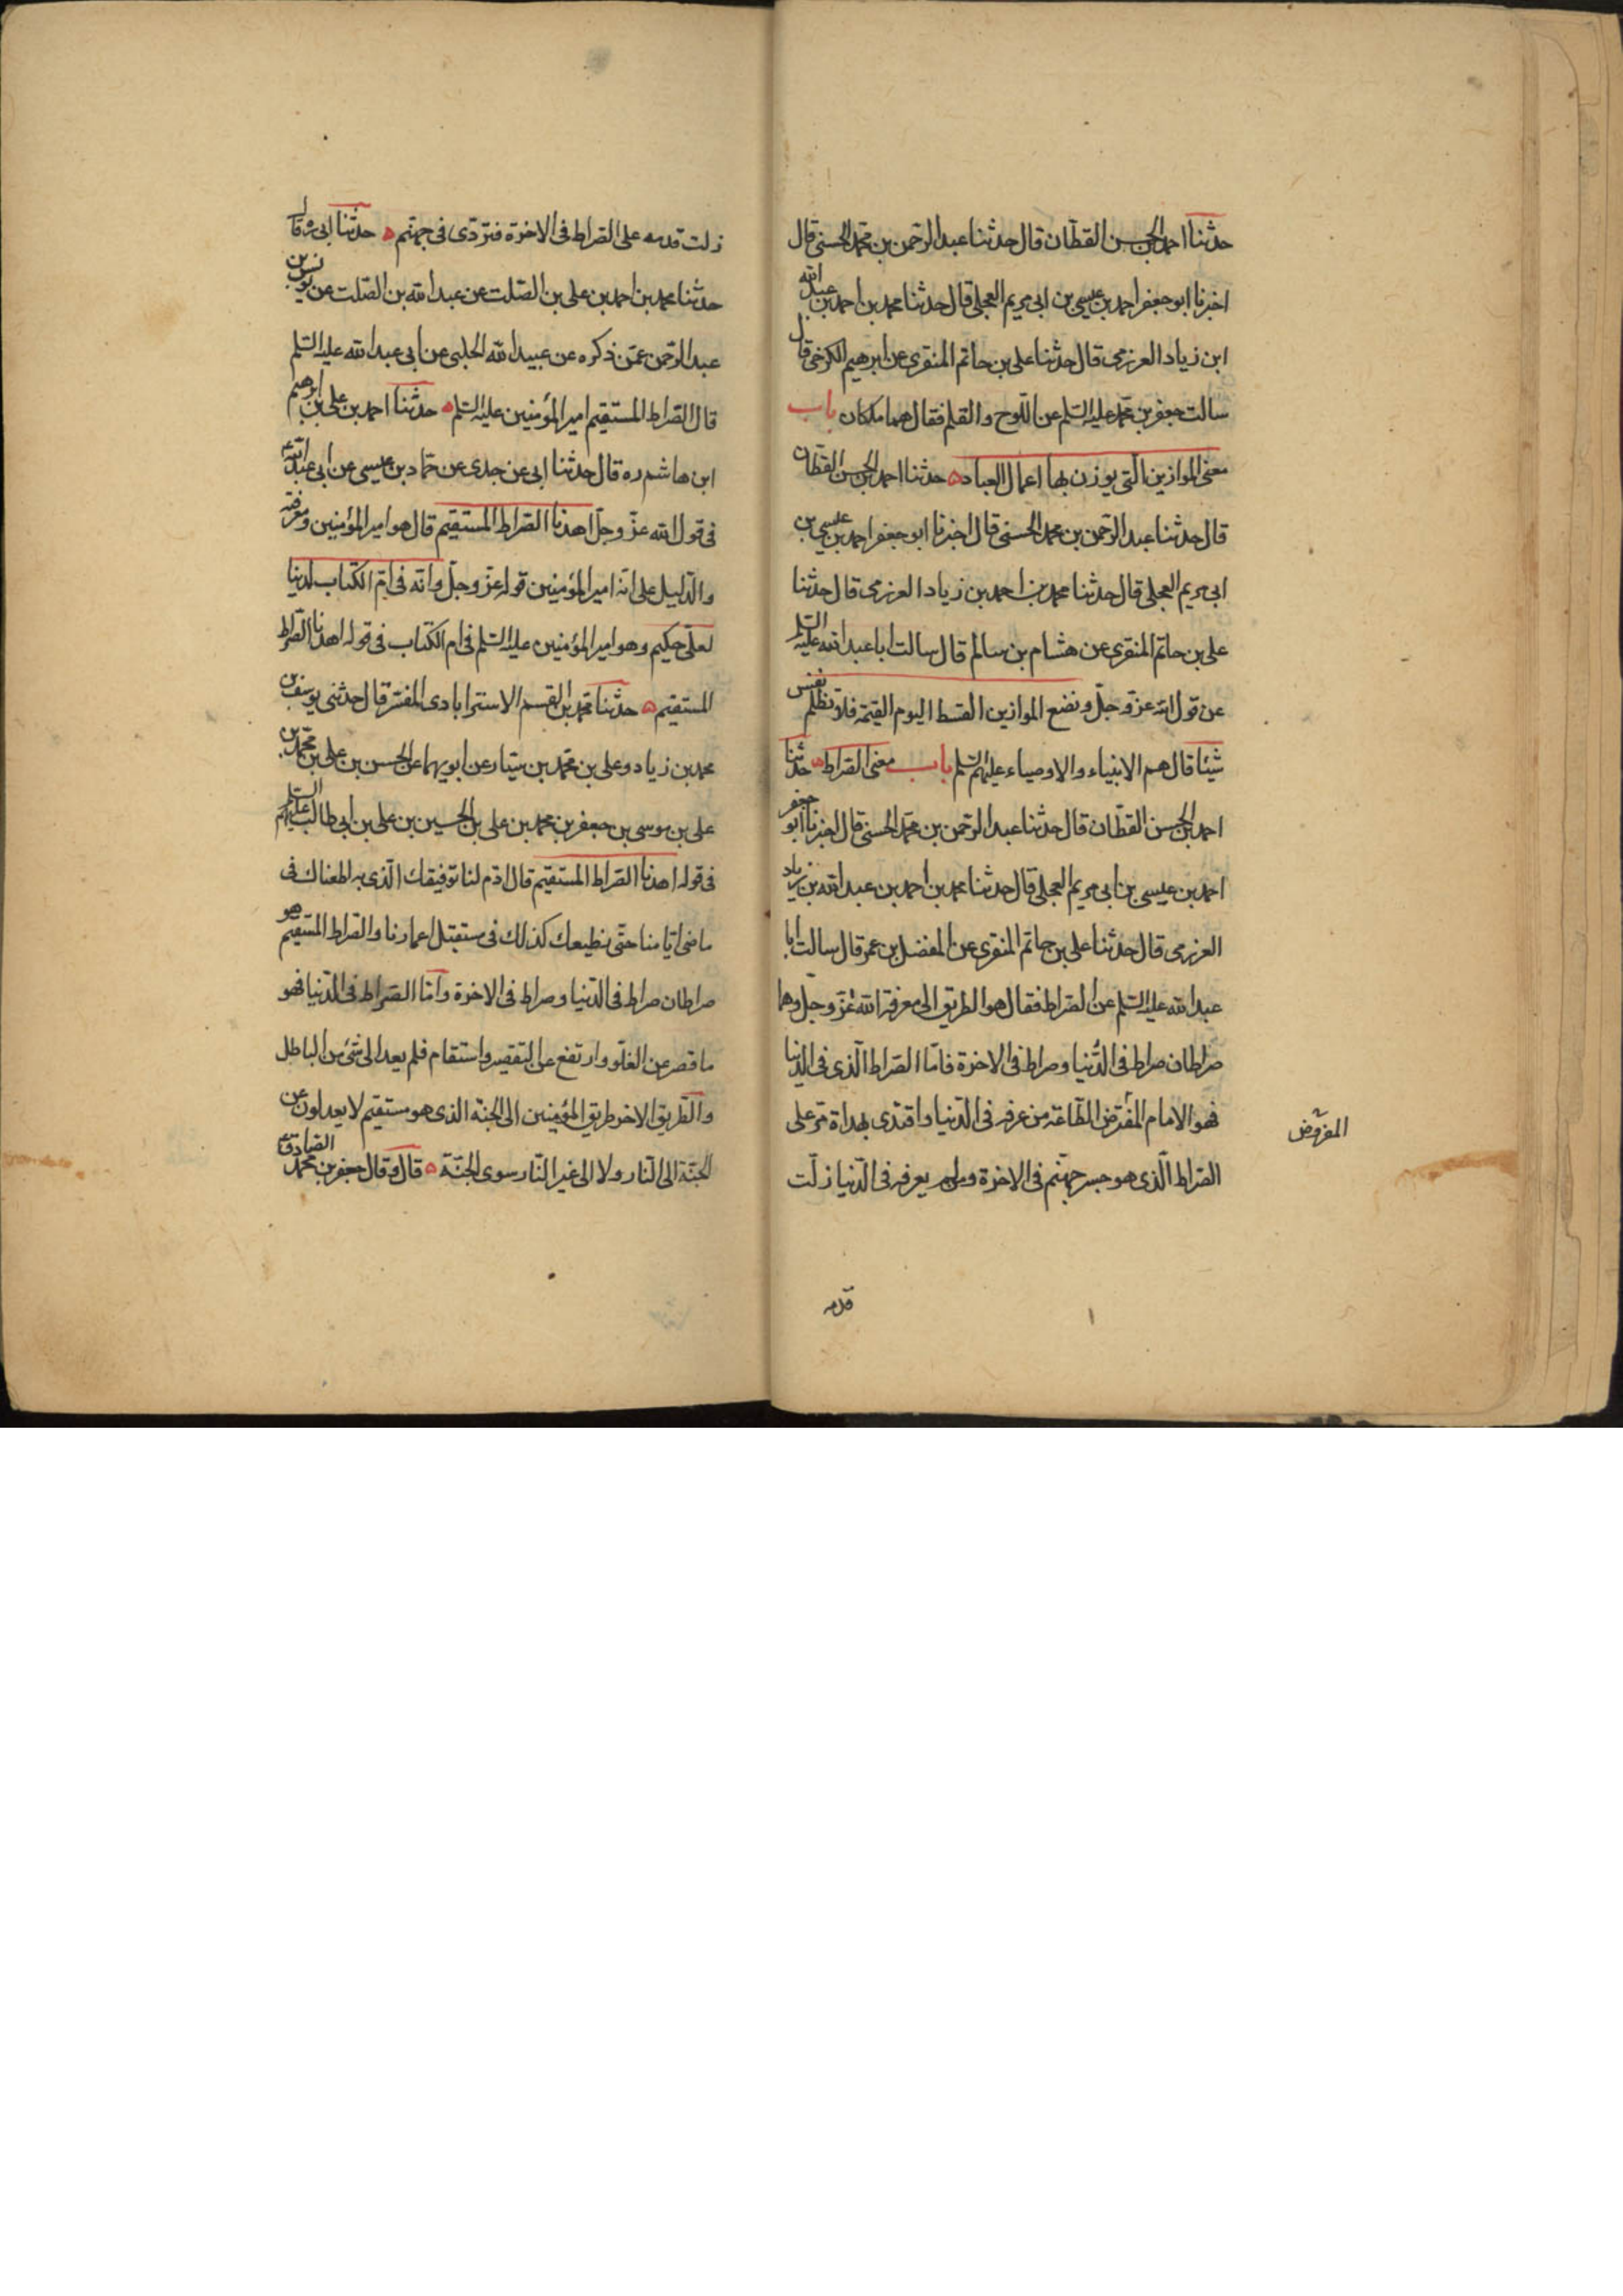 حدثنا احمد بن الحسن القطان قال حدثنا عبد الرحمن بن محمد الحسنى قال
اخبرنا ابو جعفر احمد بن عيسى بن ابى مريم العجلى قال حدثنا محمد بن احمد بن عبد الله
ابن زياد العرزمى قال حدثنا على بن حاتم المنقرى عن ابرهيم الكرخى قال
سالت جعفر بن محمد عليه السلم عن اللوح والقلم فقال هما ملكان باب
معنى الموازين التى يوزن بها اعمال العباد ه حدثنا احمد بن الحسن القطان
قال حدثنا عبد الرحمن بن محمد الحسنى قال اخبرنا ابو جعفر احمد بن عيسى بن
ابى مريم العجلى قال حدثنا محمد بن احمد بن زياد العرزمى قال حدثنا
على بن حاتم المنقرى عن هشام بن سالم قال سالت ابا عبد الله عليه السلم
عن قول الله عز وجل ونضع الموازين القسط اليوم القيمة فلا تظلم نفس
شيئا قال هم الانبياء والاوصياء عليهم السلم باب معنى الصراط ه حدثنا
احمد بن الحسن القطان قال حدثنا عبد الرحمن بن محمد الحسنى قال اخبرنا ابو جعفر
احمد بن عيسى بن ابى مريم العجلى قال حدثنا محمد بن احمد بن عبد الله بن زياد
العرزمى قال حدثنا على بن حاتم المنقرى عن المفضل بن عمر قال سالت ابا
عبد الله عليه السلم عن الصراط فقال هو الطريق الى معرفة الله عز وجل وهما
صراطان صراط فى الدنيا وصراط فى الاخرة فاما الصراط الذى فى الدنيا
فهو الامام المفترض الطاعة من عرفه فى الدنيا واقتدى بهداة مر على
المفروض
الصراط الذى هو جسر جهنم فى الاخرة ومن لم يعرفه فى الدنيا زلت
قدمه
زلت قدمه على الصراط فى الاخرة فتردى فى جهنم ه حدثنا ابى ره قال
حدثنا محمد بن احمد بن على بن الصلت عن عبد الله بن الصلت عن يونس بن
عبد الرحمن عمن ذكره عن عبيد الله الحلبى عن ابى عبد الله عليه السلم
قال الصراط المستقيم امير المؤمنين عليه السلم ه حدثنا احمد بن على بن ابرهيم
ابن هاشم ره قال حدثنا ابى عن جدى عن حماد بن عيسى عن ابى عبد الله ع
فى قول الله عز وجل اهدنا الصراط المستقيم قال هو امير المؤمنين ومعرفته
والدليل على انه امير المؤمنين قوله عز وجل وانه فى ام الكتاب لدينا
لعلى حكيم وهو امير المؤمنين عليه السلم فى ام الكتاب فى قوله اهدنا الصراط
المستقيم ه حدثنا محمد بن القسم الاسترابادى المفسر قال حدثنى يوسف بن
محمد بن زياد وعلى بن محمد بن سيار عن ابويهما عن الحسن بن على بن محمد بن
على بن موسى بن جعفر بن محمد بن على بن الحسين بن على بن ابى طالب عليهم السلم
فى قوله اهدنا الصراط المستقيم قال ادم لنا توفيقك الذى به اطعناك فى
ماضى ايامنا حتى نطيعك كذلك فى مستقبل اعمارنا والصراط المستقيم هو
صراطان صراط فى الدنيا وصراط فى الاخرة واما الصراط فى الدنيا فهو
ما قصر عن الغلو وارتفع عن التقصير واستقام فلم يعدل الى شئ من الباطل
والطريق الاخر طريق المؤمنين الى الجنة الذى هو مستقيم لا يعدلون عن
الجنة الى النار ولا الى غير النار سوى الجنة ه قال وقال جعفر بن محمد الصادق ع